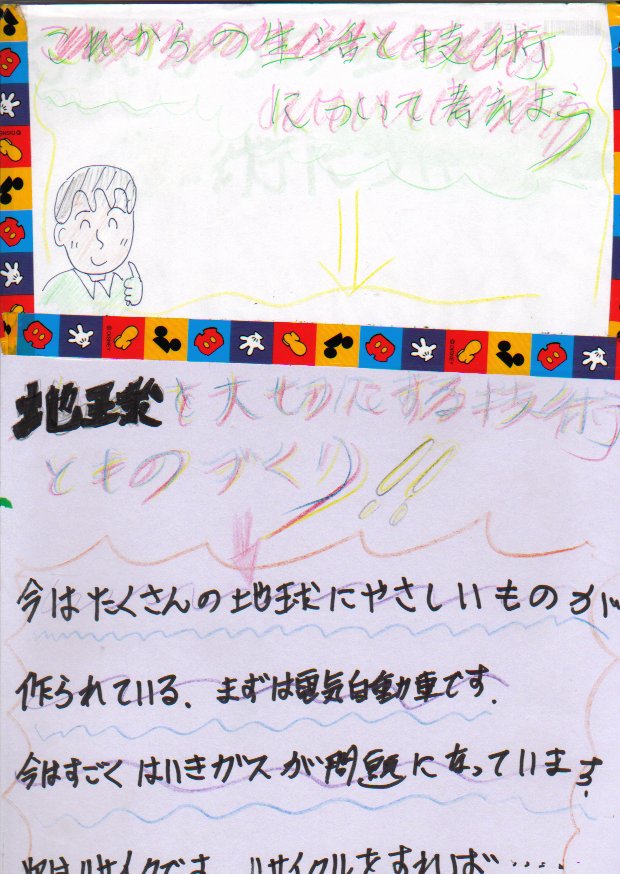 これからの生活と技術
について考えよう
地球を大切にする技術
とものづくり!!
今はたくさんの地球にやさしいものが
作られている、まずは電気自動車です.
今はすごくはいきガスが問題になっています.
次はリサイクルです、リサイクルをすれば……